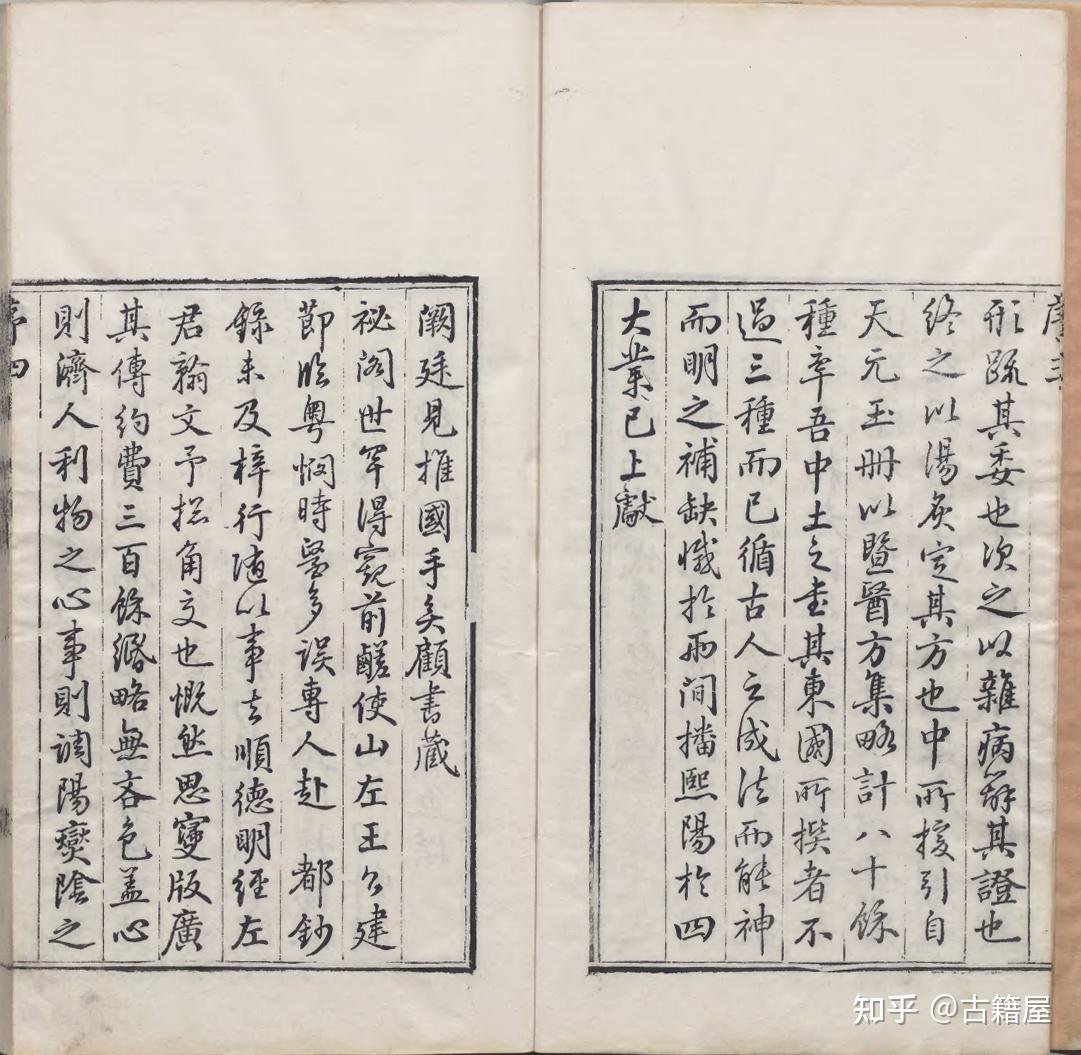 序三
形疏其委也次之以雜病辯其證也
終之以湯灸定其方也中所援引自
天元玉冊以暨醫方集略計八十餘
種率吾中土之書其東國所撰者不
過三種而已循古人之成法而能神
而明之補缺憾於兩間播熙陽於四
大業已上獻
闕廷見推國手矣顧書藏
祕閣世罕得窺前鹺使山左王公建
節臨粵憫時醫多誤專人赴 都鈔
錄未及梓行隨以事去順德明經左
君翰文予總角交也慨然思鋟版廣
其傳約費三百餘緡略無吝色蓋心
則濟人利物之心事則調陽燮陰之
序四
知乎 @古籍屋